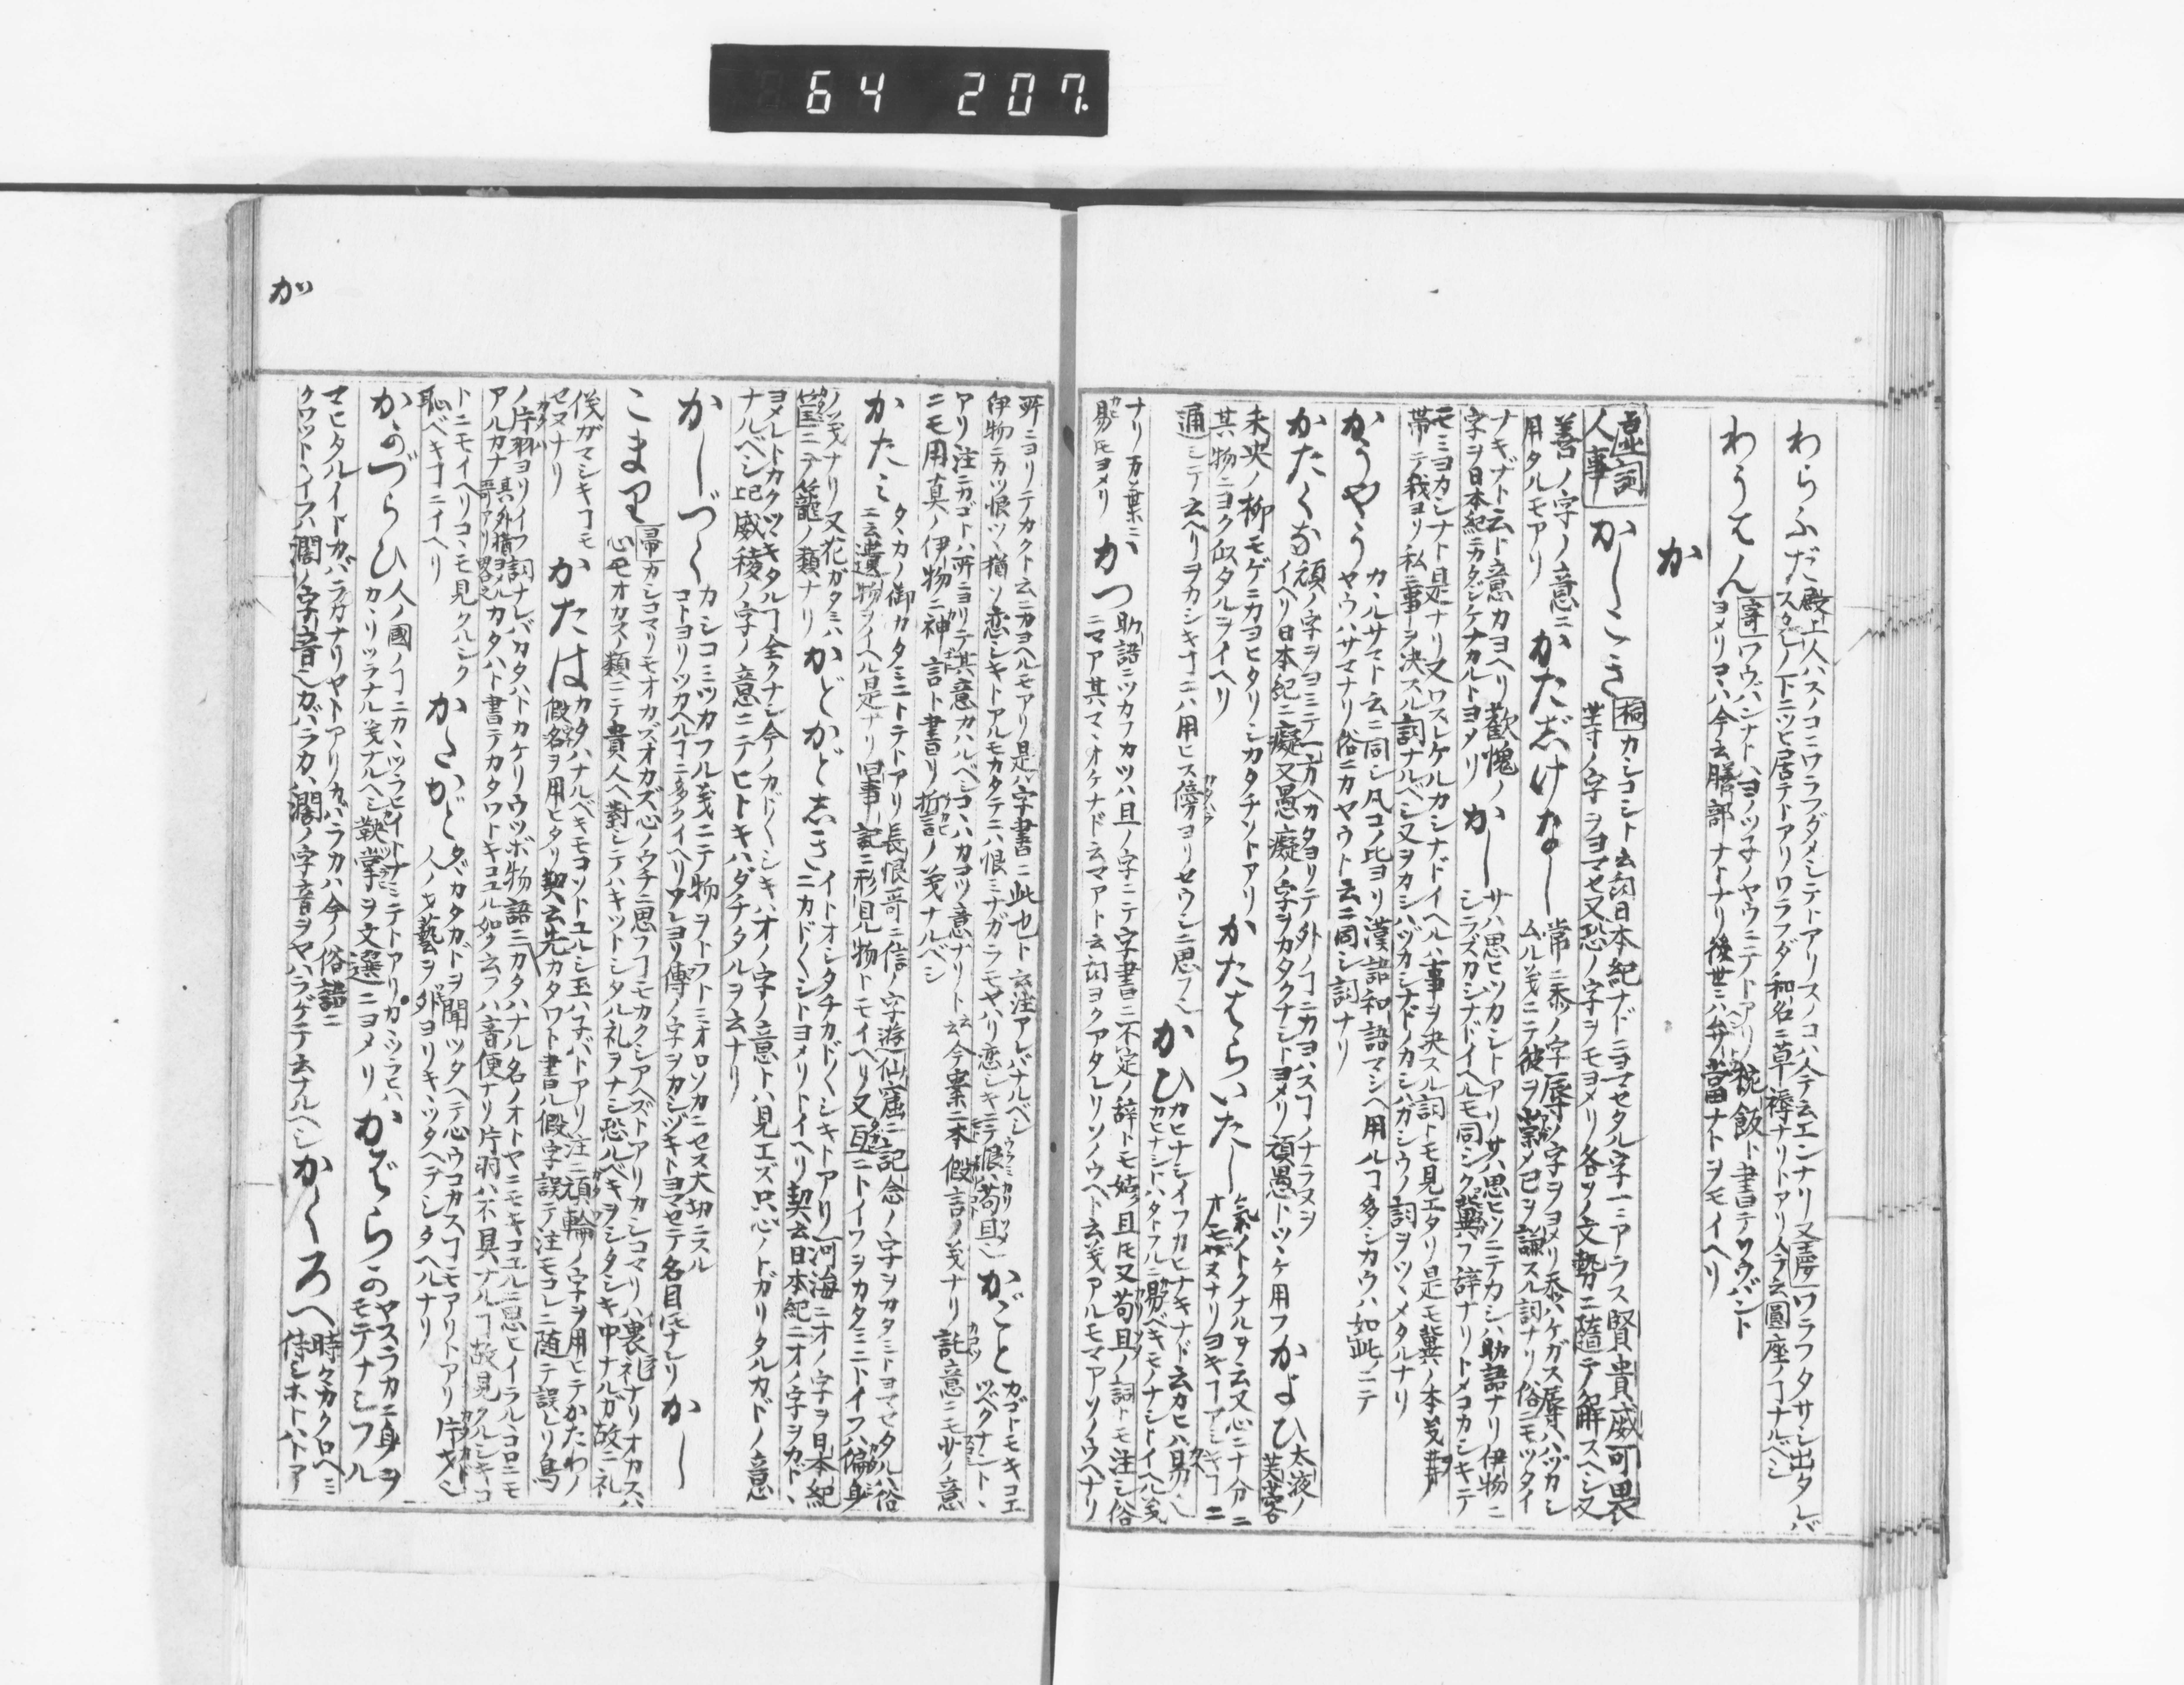 64 207
わらふだ 殿上人ハスノコニワラフダメシテトアリスノコハ今云エンナリ又壽一ワラフタサシ出タレバ
スカヒノ下ニツヒ居テトアリワラフダ和名ニ草褥ナリトアリ今云圓座ノヿナルベシ
わうてん 寄一ワウバンナトハヨノツ子ノヤウニテトアリ椀飯ト書テワウバント
ヨメリヨハ今云膳部ナトナリ後世ニハ弁當ナトヲモイヘリ
か
虚詞
人事
かしこき 桐 カシコシト云詞日本紀ナドニヨマセタル字一ニアラス賢貴威可畏
等ノ字ヲヨマセ又恐ノ字ヲモヨメリ各ソノ文勢ニ隨テ解スヘシ又
善ノ字ノ意ニ
用タルモアリ
かたじけなし 常ニ忝ノ字辱ノ字ヲヨメリ忝ハケガス辱ハハヅカシ
ムル義ニテ彼ヲ崇メ已ヲ謙スル詞ナリ俗ニモツタイ
ナキナト云ト意カヨヘリ歡愧ノ
字ヲ日本紀ニカタジケナカルトヨメリ
かし サハ思ヒツカシトアリサハ思ヒソニテカシハ助語ナリ伊物ニ
シラズカシナドイヘルモ同シク冀フ辞ナリトメコカシキテ
モミヨカシナト是ナリ又ワスレケルカシナドイヘルハ事ヲ決スル詞トモ見エタリ是モ冀ノ本義
帯テ我ヨリ私ニ事ヲ決スル詞ナルベシ又ヲカシハヅカシナドノカシハガシウノ詞ヲツヽメタルナリ
かうやう カヽルサマト云ニ同シ凡コノ比ヨリ漢語和語マシヘ用ルヿ多シカウハ如此ノニテ
ヤウハサマナリ俗ニカヤウト云ニ同シ詞ナリ
かたくな 頑ノ字ヲヨミテ一方ヘカタヨリテ外ノヿニカヨハスヿノナラヌヲ
イヘリ日本紀ニ癡又愚癡ノ字ヲカタクナシトヨメリ頑愚トツヽケ用フ
かよひ 太液ノ
芙蓉
未央ノ柳モゲニカヨヒタリシカタチソトアリ
其物ニヨク似タルヲイヘリ
かたはらいたし 氣ノトクナルヲ云又心ニ十分ニ
オモハヌナリヨキヿアシキヿニ
通シテ云ヘリヲカシキヿニハ用ヒス傍ヨリセウシニ思フ也
かひ カヒナシイフカヒナキナド云カヒハ易也
カヒナシトハタトフルニ易ベキモノナシトイヘル義
ナリ万葉ニ
易氏ヨメリ
かつ 助語ニツカフカツハ且ノ字ニテ字書ニ不定ノ辞トモ姑且氏又苟且ノ詞トモ注シ俗
ニマア其マヽオケナド云マアト云詞ヨクアタレリソノウヘト云義アルモマアソノウヘナリ
所ニヨリテカクト云ニカヨヘルモアリ是ハ字書ニ此也ト云注アレバナルベシ
伊物ニカツ恨ツヽ猶ソ恋シキトアルモカタテニハ恨ミナガニラモヤハリ恋シキニテ恨ハ苟且也
かごと カゴトモキコエ
ツベクナント、
アリ注ニカゴトハ所ニヨリテ其意カハルベシコヽハカヨツ意ナリト云云今案ニ本假言ノ義ナリ託意ニモサノ意
ニモ用真ノ伊物ニ神言ト書リ哲語ノ義ナルベシ
かたミ タヽカノ御カタミニトテトアリ長恨哥ニ信ノ字游仙窟ニ記念ノ字ヲカタミトヨマセタルハ俗
ニ云遺物ヲイヘル是ナリ旧事記ニ形見ル物トモイヘリ又互ニトイフヲカタミニトイフハ偏身
ノ義ナリ又花ガタミハ
筐ニテ籠ノ類ナリ
かどかどしき イトオシタチカド〱シキトアリ河海ニオノ字ヲ日本紀
ニカド〱シトヨメリトイヘリ契云日本紀ニオノ字ヲカド、
ヨメレトカクツヾキタルヿ全クナシ今ノカド〱シキハオノ字ノ意トハ見エズ只心ノトガリタルカドノ意
ナルベシ上記威稜ノ字ノ意ニテヒトキハダチタルヲ云ナリ
かしづく カシコミツカフル義ニテ物ヲトフトミオロソカニセス大切ニスル
コトヨリツカヘルヿニ多クイヘリソレヨリ傳ノ字ヲカシヅキトヨマセテ名目氏ナレリ
かし
こまり 帚 カシコマリモオカズオカズ心ノウチニ思フヿモカクシアヘズトアリカシコマリハ裏礼ナリオカスハ
心モオカス類ニテ貴人ヘ對シテハキットシタル礼ヲナシ恐ルベキヲシタシキ中ナルガ故ニ礼
後ガマシキヿモ
セヌナリ
かたは カタハナルベキモコソトユルシ玉ハ子バトアリ注ニ頑輪ノ字ヲ用ヒテかたわノ
假名ヲ用ヒタリ契云先カタワト書ル假字誤テ注モコレニ随テ誤レリ鳥
ノ片羽ヨリイフ詞ナレバカタハトカケリウツボ物語ニカタハナル名ノオトヤニモキコユルニ思ヒイラルヽコロニモ
アルカナ具外猶ヨメル哥アリ畧之カタハト書テカタワトキコユル如ク云フハ音便ナリ片羽ハ不具ナルヿ故見クルシキヿ
トニモイヘリコヽモ見クルシク
恥ベキヿニイヘリ
かたかど タヾカタカドヲ聞ツタヘテ心ウコカスヿモアリトアリ片オ也
人ノオ藝ヲ外ヨリキヽツタヘテシタヘルナリ
かゝづらひ 人ノ國ノヿニカヽツラヒイトナミテトアリカヽツラヒハ
カヽリツラナル義ナルヘシ鞅掌ヲ文選ニヨメリ
かばらか ヤスラカニ身ヲ
モテナシフル
マヒタルイトカバラカナリヤトアリカハラカハ今ノ俗語ニ
クワツトイフハ濶ノ字音也カバラカハ濶ノ字音ヲヤハラゲテ云ナルヘシ
かくろへ 時々カクロヘミ
侍シホトハトア
が